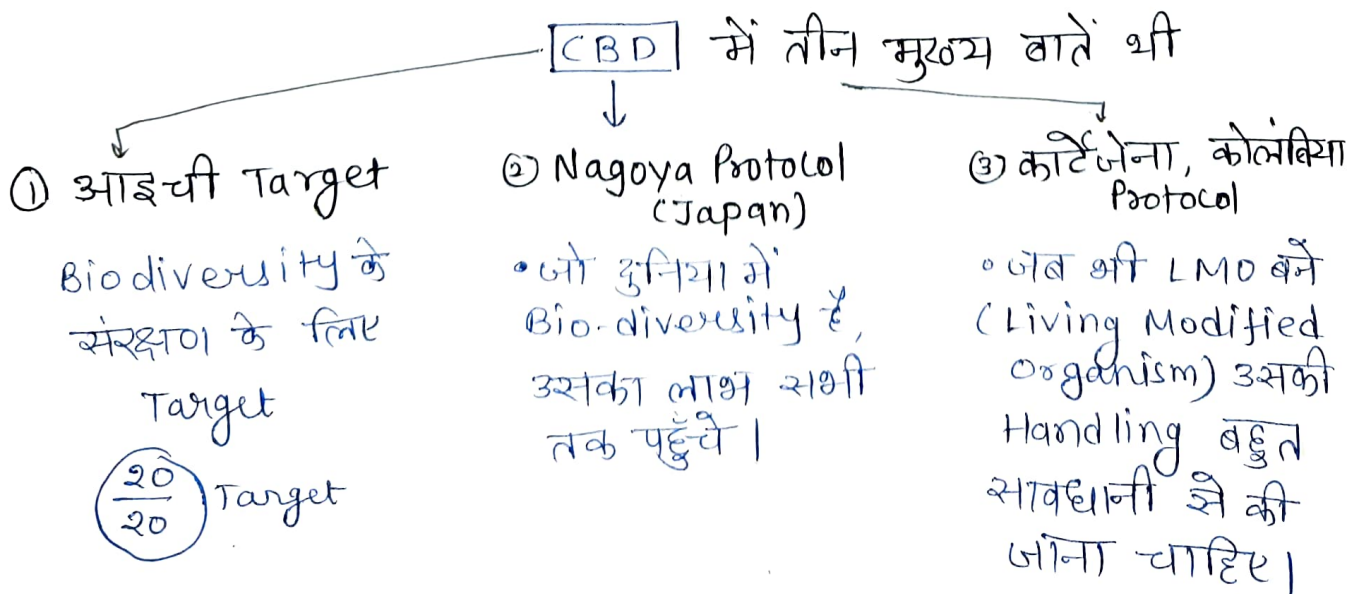 CBD में तीन मुख्य बातें थी
① आइची Target
Biodiversity के
संरक्षण के लिए
Target
20
20
Target
② Nagoya Protocol
(Japan)
• जो दुनिया में
Bio-diversity है,
उसका लाभ सभी
तक पहुँचे।
③ कार्टेजेना, कोलंबिया
Protocol
• जब भी LMO बने
(Living Modified
Organism) उसकी
Handling बहुत
सावधानी से की
जाना चाहिए।